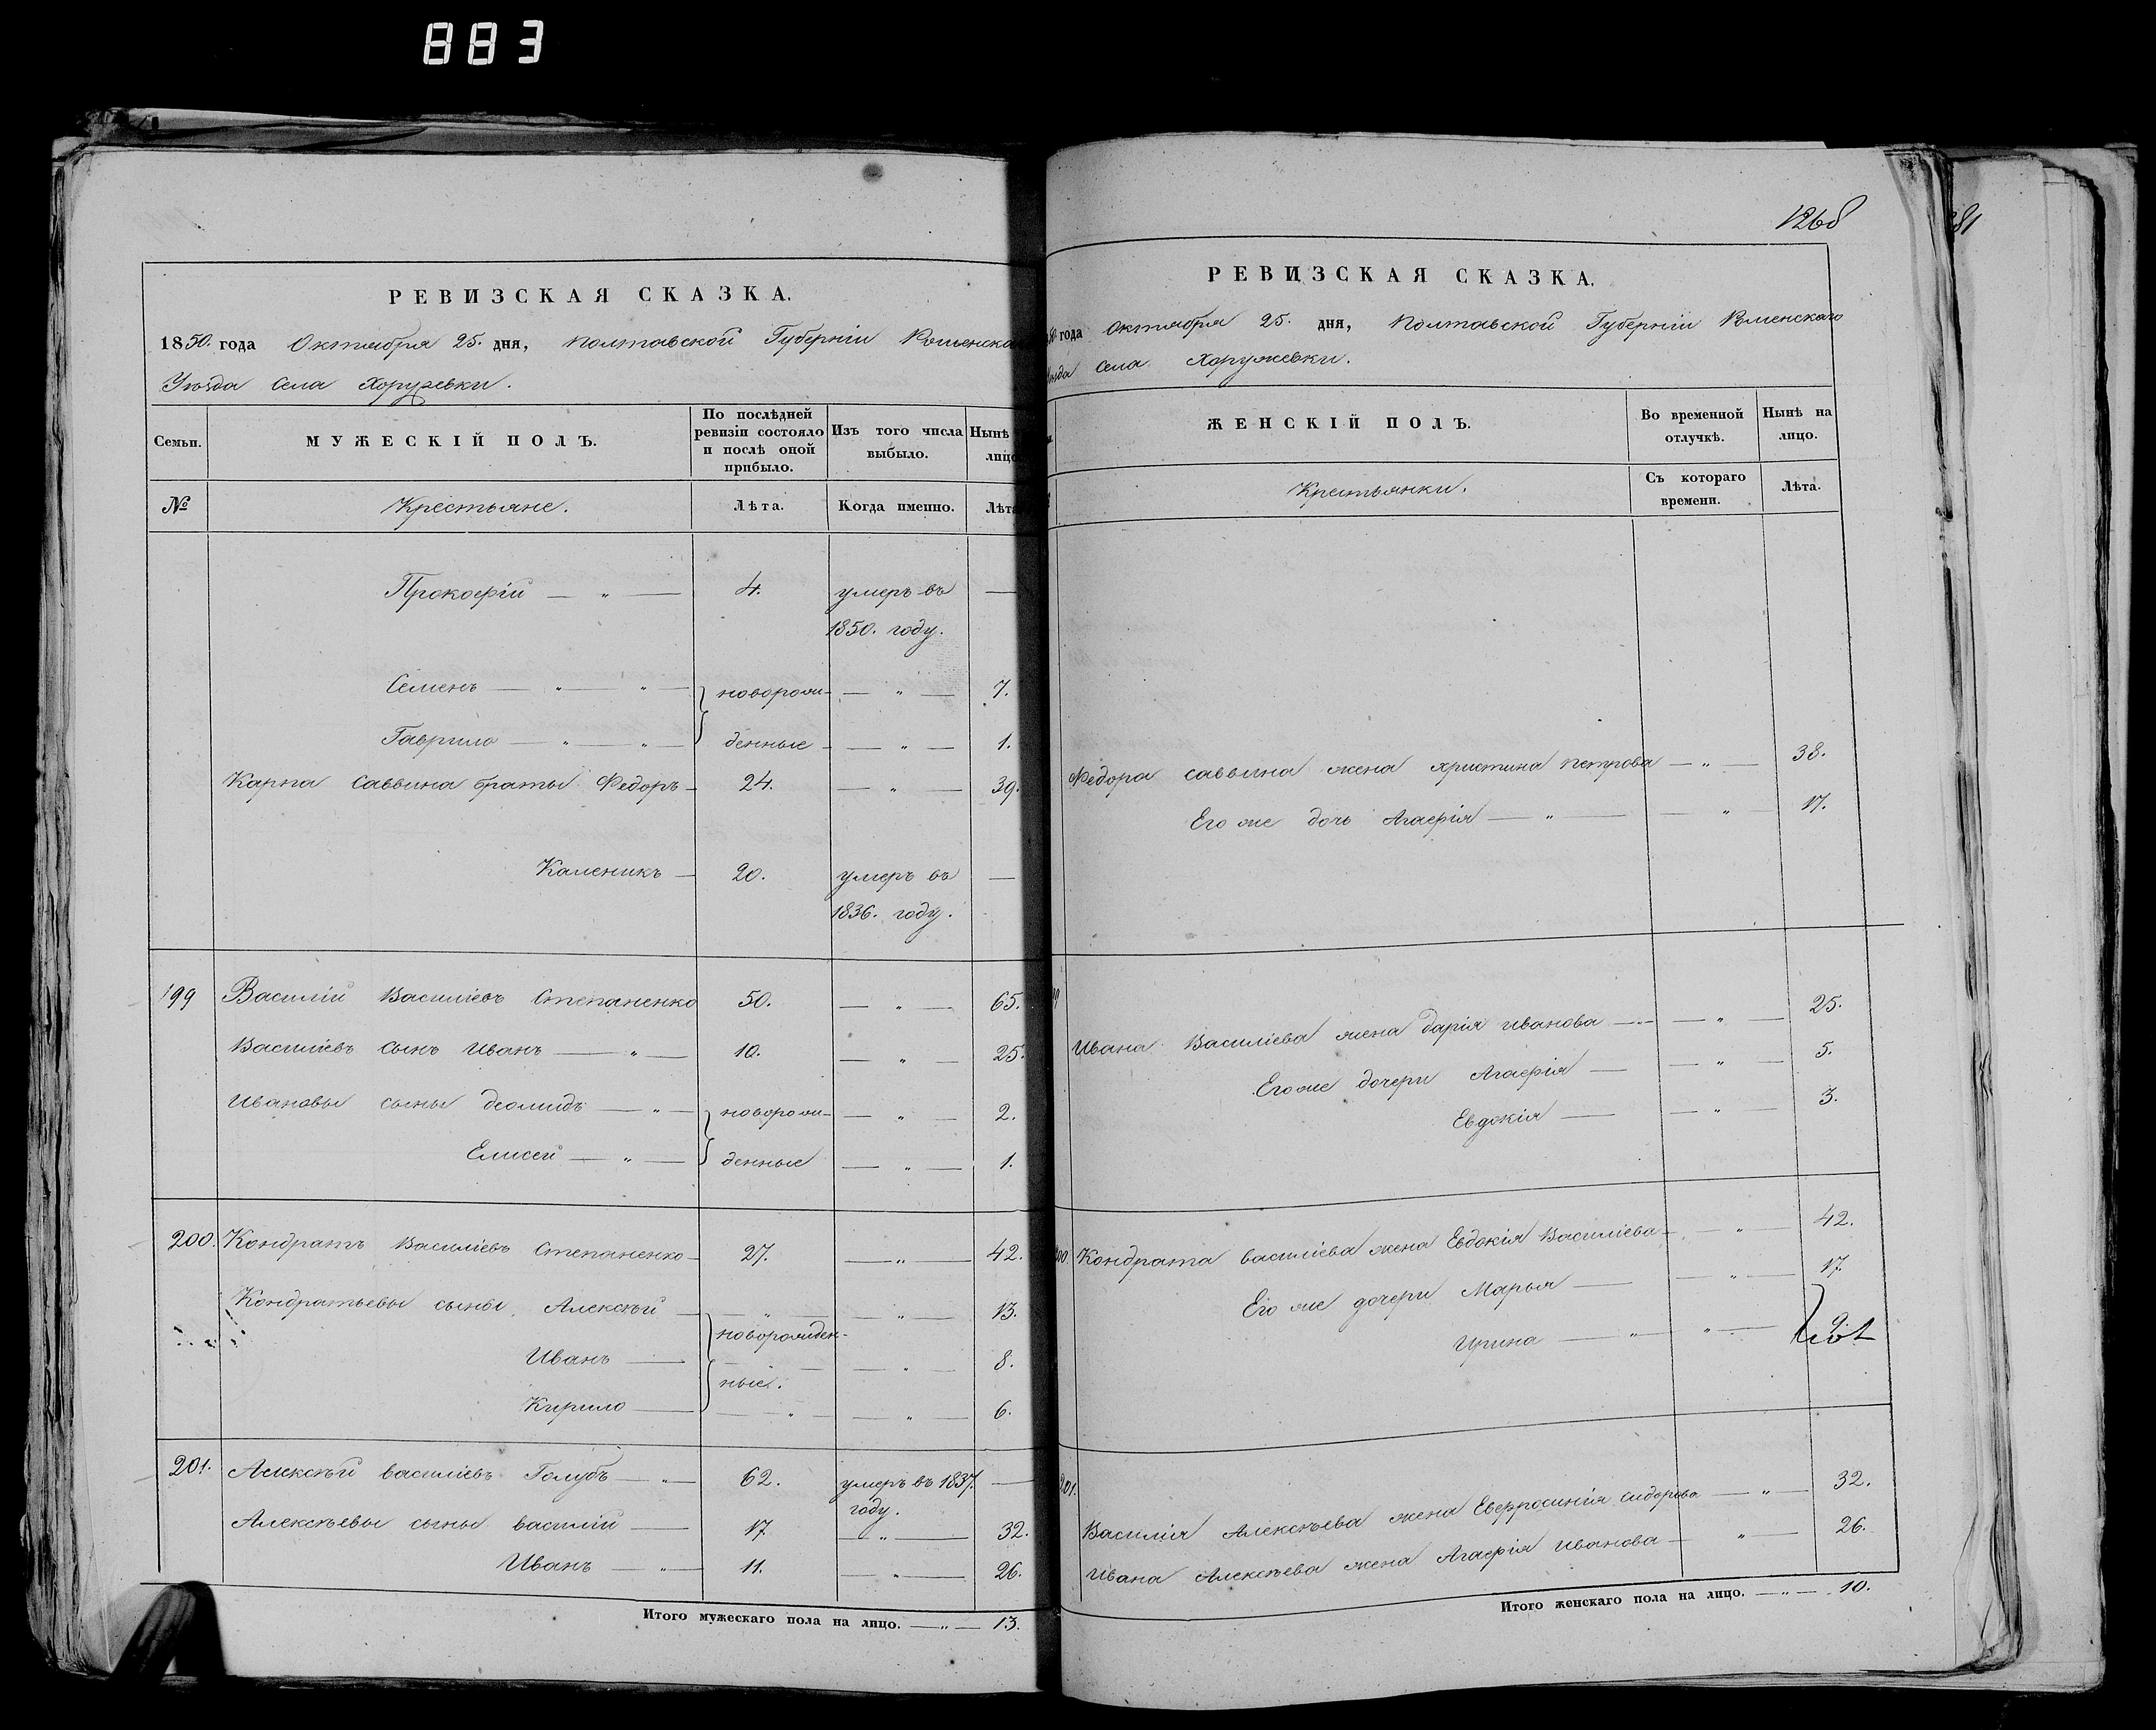 883
РЕВИЗСКАЯ СКАЗКА.
1850. года Октября 25. дня, Полтавской Губерніи Роменска
Уѣзда Села Хоружевки.
Семьи.
МУЖЕСКІЙ ПОЛЪ.
По послѣдней ревизіи состояло и послѣ оной прибыло.
Изъ того числа выбыло.
Нынѣ лицо
№
Крестьяне.
Лѣта.
Когда именно.
Лѣта
Прокофій — „ — 4. умеръ въ —
1850. году.
Семенъ — „ — „ — новорож- — „ — 7.
Гаврило — „ — „ — денные — „ — 1.
Карпа Саввина браты Федоръ — 24. — „ — 39.
Каленикъ — 20. умеръ въ —
1836. году.
199 Василій Василіевъ Степаненко 50. — „ — 65.
Василіевъ Сынъ Иванъ — „ — 10. — „ — 25.
Ивановы сыны Деомидъ — „ — новорож- — „ — 2.
Елисей — „ — денные — „ — 1.
200. Кондратъ Василіевъ Степаненко — 27. — „ — 42.
Кондратьевы сыны Алексѣй — „ — „ — 13.
новорожден-
Иванъ — — „ — 8.
ные.
Кирило — — „ — — „ — 6.
201. Алексѣй Василіевъ Голубъ — „ — 62. умеръ въ 1837. —
году.
Алексѣевы сыны Василій — 17 — „ — 32.
Иванъ — „ — 11. — „ — 26.
Итого мужескаго пола на лицо. — „ — 13.
1268
281
РЕВИЗСКАЯ СКАЗКА.
года Октября 25. дня, Полтавской Губерніи Роменскаго
Села Хоружевки.
ЖЕНСКІЙ ПОЛЪ.
Во временной отлучкѣ.
Нынѣ на лицо.
Крестьянки.
Съ котораго времени.
Лѣта.
Федора Саввина жена Христина Петрова — „ — 38.
Его же дочь Агафія — „ — — „ — 17.
Ивана Василіева жена Дарія Иванова — „ — — „ — 25.
Его же дочери Агафія — — „ — 5.
Евдокія — — „ — 3.
200. Кондрата Василіева жена Евдокія Василіева — „ — 42.
Его же дочери Марья — — „ — 17.
Ирина — „ — „ — 9.
201.
Василія Алексѣева жена Евфросинія Сидорова — „ — 32.
Ивана Алексѣева жена Агафія Иванова — „ — 26.
Итого женскаго пола на лицо. — „ — 10.